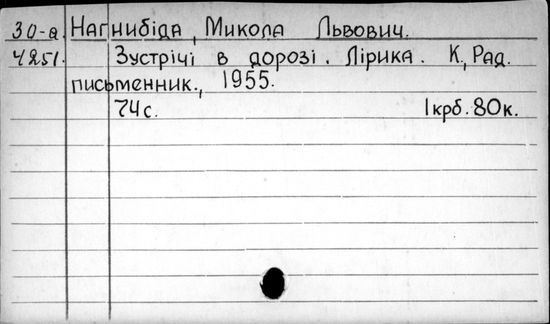 30-а. Нагнибіда, Микола Львович.
4251. Зустрічі в дорозі. Лірика. К, Рад.
письменник., 1955.
74 с. 1 крб. 80 к.